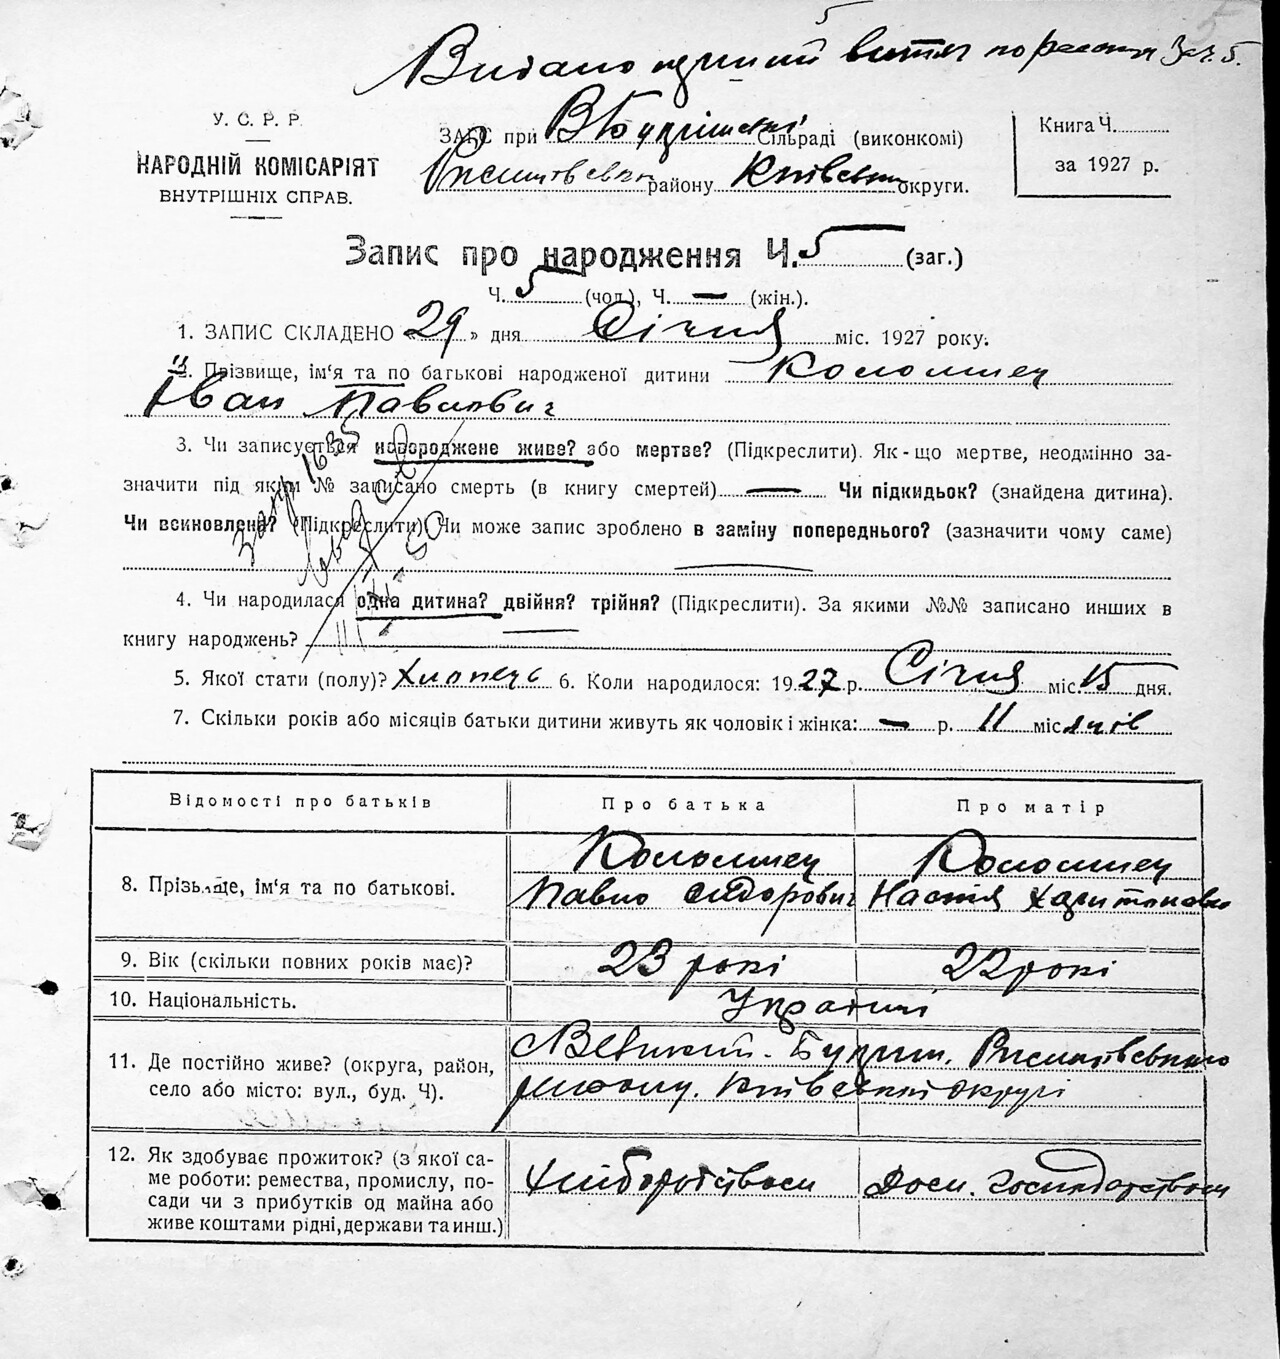 5
Видано перший витяг по реєстр За ч. 5.
У. С. Р. Р.
НАРОДНІЙ КОМІСАРІЯТ
ВНУТРІШНІХ СПРАВ.
ЗАГС при В Букринській Сільраді (виконкомі)
Ржищівського району Київської округи.
Книга Ч.
за 1927 р.
Запис про народження Ч. 5 (заг.)
Ч. 5 (чол.), Ч. — (жін.).
1. ЗАПИС СКЛАДЕНО «29» дня Січня міс. 1927 року.
2. Прізвище, ім'я та по батькові народженої дитини Коломиец
Іван Павлович
3. Чи записується новороджене живе? або мертве? (Підкреслити). Як-що мертве, неодмінно за-
значити під яким № записано смерть (в книгу смертей) — Чи підкидьок? (знайдена дитина).
Чи всиновлена? (Підкреслити) Чи може запис зроблено в заміну попереднього? (зазначити чому саме)
4. Чи народилася одна дитина? двійня? трійня? (Підкреслити). За якими №№ записано инших в
книгу народжень?
5. Якої стати (полу)? Хлопець 6. Коли народилося: 1927 р. Січня міс. 15 дня.
7. Скільки років або місяців батьки дитини живуть як чоловік і жінка: — р. 11 місяців
Відомості про батьків Про батька Про матір
8. Прізвище, ім'я та по батькові. Коломиец Павло Сидорович Коломиец Настя Харитоновна
9. Вік (скільки повних років має)? 23 рокі 22 рокі
10. Національність. Украінці
11. Де постійно живе? (округа, район, Великий-Букрин, Ржищівського
село або місто: вул., буд. Ч). району. Київської округі
12. Як здобуває прожиток? (з якої са-
ме роботи: ремества, промислу, по- Хліборобством Дом. господарством
сади чи з прибутків од майна або
живе коштами рідні, держави та инш.)